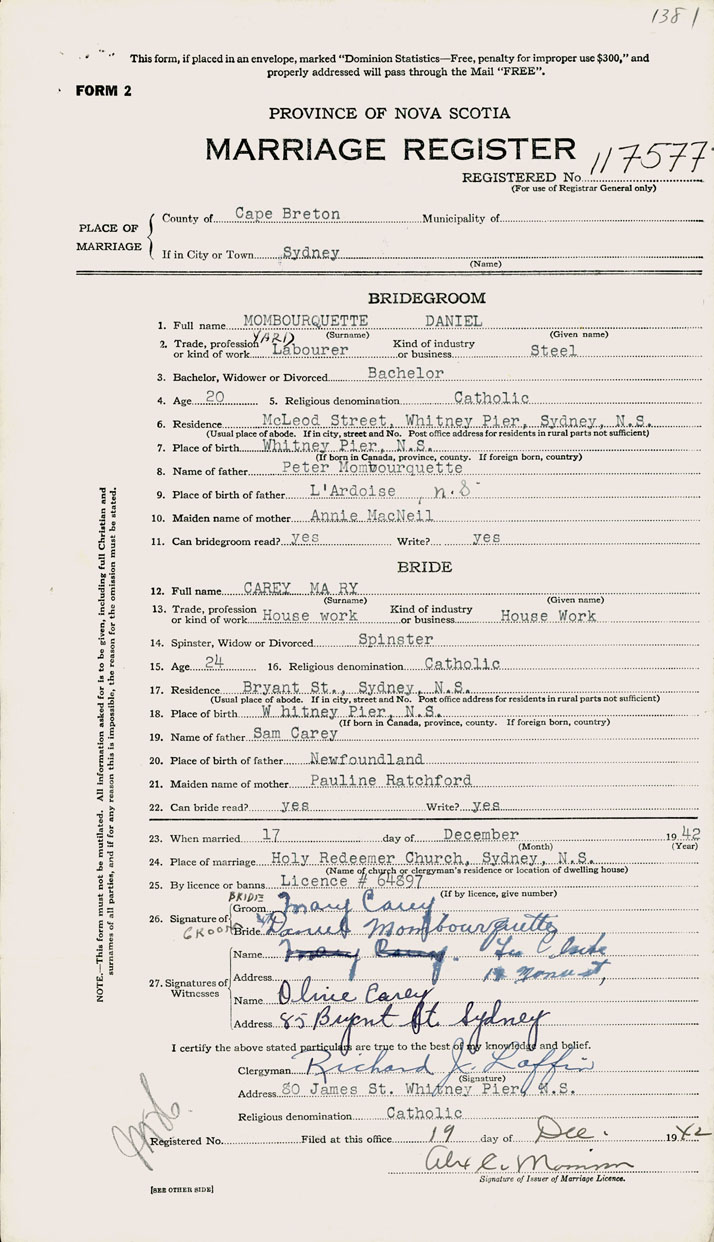 1381
This form, if placed in an envelope, marked "Dominion Statistics—Free, penalty for improper use $300," and
properly addressed will pass through the Mail "FREE".
FORM 2
PROVINCE OF NOVA SCOTIA
MARRIAGE REGISTER
REGISTERED No. 117577
(For use of Registrar General only)
PLACE OF MARRIAGE
County of Cape Breton Municipality of
If in City or Town Sydney
(Name)
BRIDEGROOM
1. Full name MOMBOURQUETTE DANIEL
(Surname) (Given name)
2. Trade, profession or kind of work YARD Labourer Kind of industry or business Steel
3. Bachelor, Widower or Divorced Bachelor
4. Age 20 5. Religious denomination Catholic
6. Residence McLeod Street, Whitney Pier, Sydney, N.S.
(Usual place of abode. If in city, street and No. Post office address for residents in rural parts not sufficient)
7. Place of birth Whitney Pier, N.S.
(If born in Canada, province, county. If foreign born, country)
8. Name of father Peter Mombourquette
9. Place of birth of father L'Ardoise, n.S
10. Maiden name of mother Annie MacNeil
11. Can bridegroom read? yes Write? yes
BRIDE
12. Full name CAREY MA RY
(Surname) (Given name)
13. Trade, profession or kind of work House work Kind of industry or business House Work
14. Spinster, Widow or Divorced Spinster
15. Age 24 16. Religious denomination Catholic
17. Residence Bryant St., Sydney, N.S.
(Usual place of abode. If in city, street and No. Post office address for residents in rural parts not sufficient)
18. Place of birth W hitney Pier, N.S.
(If born in Canada, province, county. If foreign born, country)
19. Name of father Sam Carey
20. Place of birth of father Newfoundland
21. Maiden name of mother Pauline Ratchford
22. Can bride read? yes Write? yes
23. When married 17 day of December 1942
(Month) (Year)
24. Place of marriage Holy Redeemer Church, Sydney, N.S.
(Name of church or clergyman's residence or location of dwelling house)
25. By licence or banns Licence # 64897
(If by licence, give number)
26. Signature of
BRIDE Groom Mary Carey
GROOM Bride Daniel Mombourquette
27. Signatures of Witnesses
Name Mary Carey.
Address
Name Olive Carey
Address 85 Brynt St. Sydney
I certify the above stated particulars are true to the best of my knowledge and belief.
Clergyman Richard J. Laffin
(Signature)
Address 80 James St. Whitney Pier, N.S.
Religious denomination Catholic
Registered No. Filed at this office 19 day of Dec. 1942
Signature of Issuer of Marriage Licence.
[SEE OTHER SIDE]
NOTE.—This form must not be mutilated. All information asked for is to be given, including full Christian and
surnames of all parties, and if for any reason this is impossible, the reason for the omission must be stated.